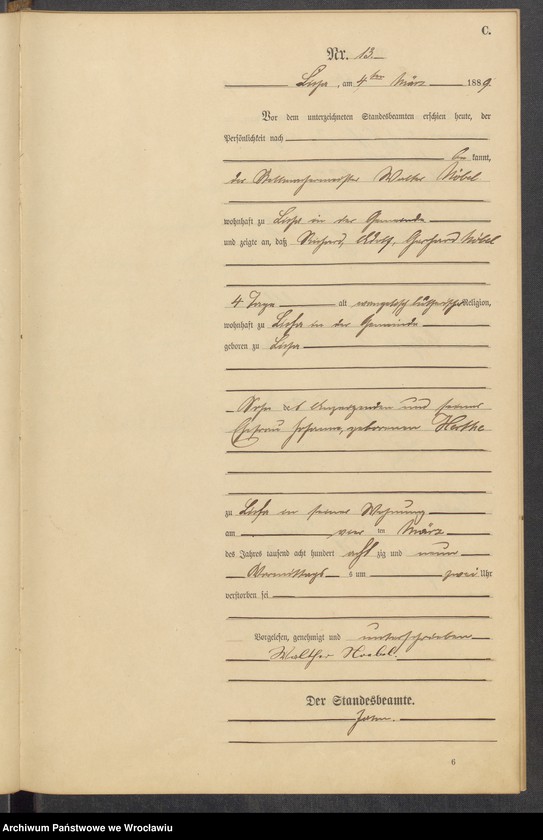 C.
Nr. 13.
Lissa, am 4ten März 1889.
Vor dem unterzeichneten Standesbeamten erschien heute, der
Persönlichkeit nach
be kannt,
der Stellmachermeister Walter Nöbel
wohnhaft zu Lissa in der Gemeinde
und zeigte an, daß Richard, Adolf, Gerhard Nöbel
4 Tage alt evangelisch lutherischer Religion,
wohnhaft zu Lissa in der Gemeinde
geboren zu Lissa
Sohn des Anzeigenden und seiner
Ehefrau Johanna, geborenen Herthe
zu Lissa in seiner Wohnung
am vier ten März
des Jahres tausend acht hundert acht zig und neun
Vormittags um zwei Uhr
verstorben sei
Vorgelesen, genehmigt und unterschrieben
Walther Noebel.
Der Standesbeamte.
6
Archiwum Państwowe we Wrocławiu